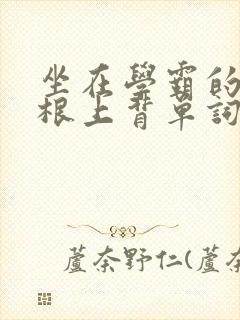 坐在學霸的
根上背單詞
蘆奈野仁(蘆奈